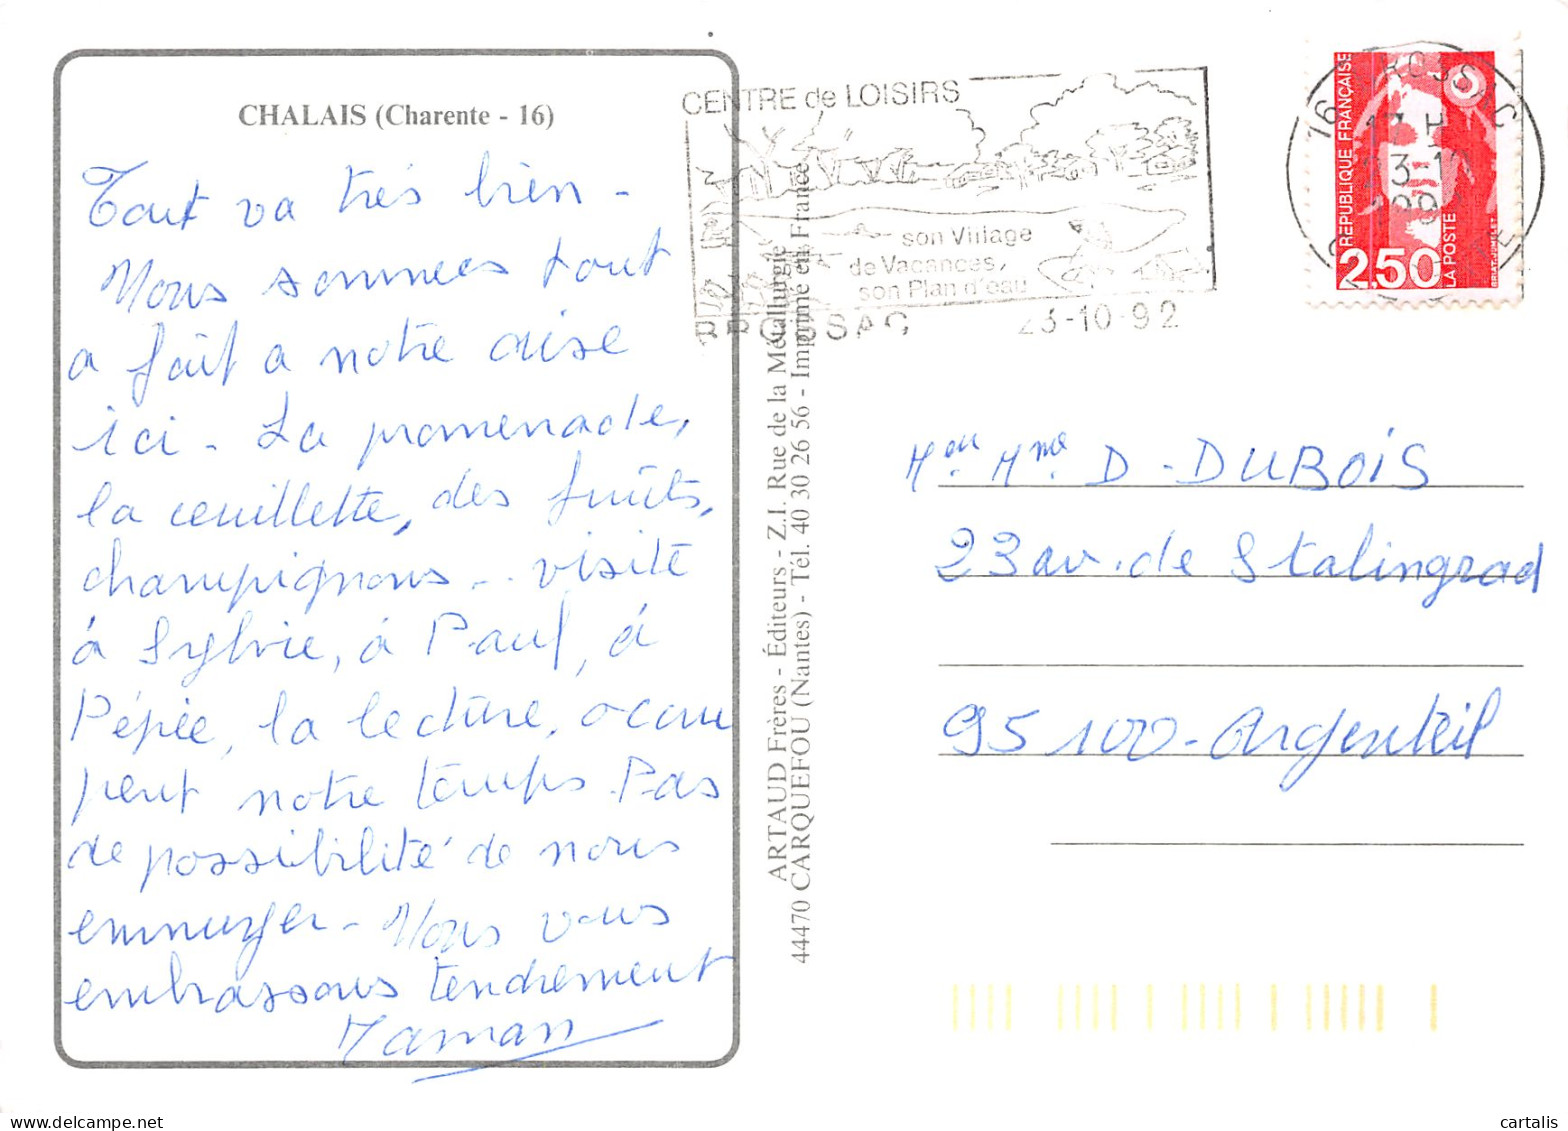 CHALAIS (Charente - 16)
Tout va très bien -
Nous sommes tout
a fait a notre aise
ici - La promenade,
la ceuillette, des fruits,
champignons - visite
à Sylvie, à Paul, à
Pépée, la lecture, occu
pent notre temps. Pas
de possibilité de nous
ennuyer - Nous vous
embrassons tendrement
Maman
CENTRE de LOISIRS
son Village
de Vacances,
son Plan d'eau
BROSSAC 23-10-92
ARTAUD Frères - Éditeurs - Z.I. Rue de la Métallurgie
44470 CARQUEFOU (Nantes) - Tél. 40 30 26 56 - Imprimé en France
16 BROSSAC
RÉPUBLIQUE FRANÇAISE
2,50
LA POSTE
Mr ou Mme D - DUBOIS
23 av. de Stalingrad
95100 - Argenteuil
cartalis